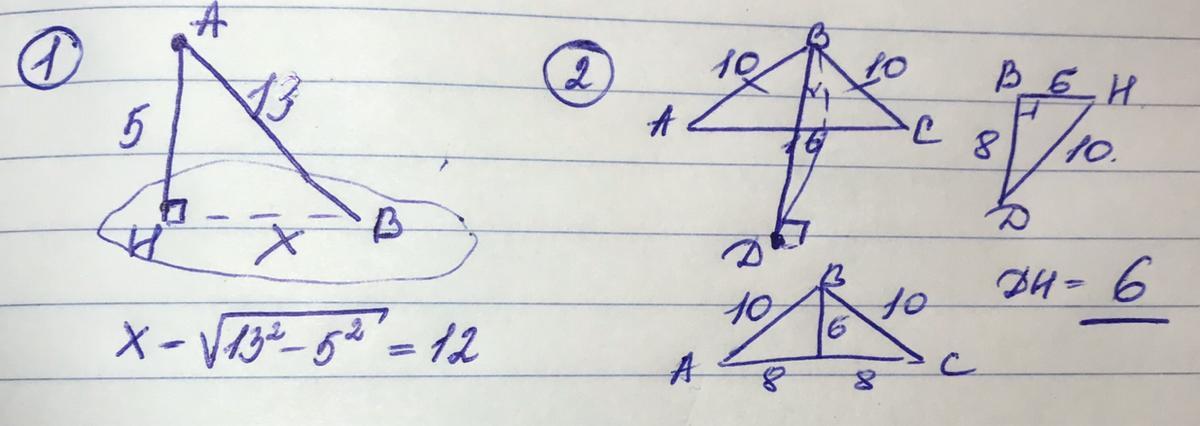 1
A
5
13
H
X
B
X = √13² - 5² = 12
2
B
10
10
A
C
16
D
B 6 H
8
10.
D
B
10
10
6
A
8
8
C
DH = 6